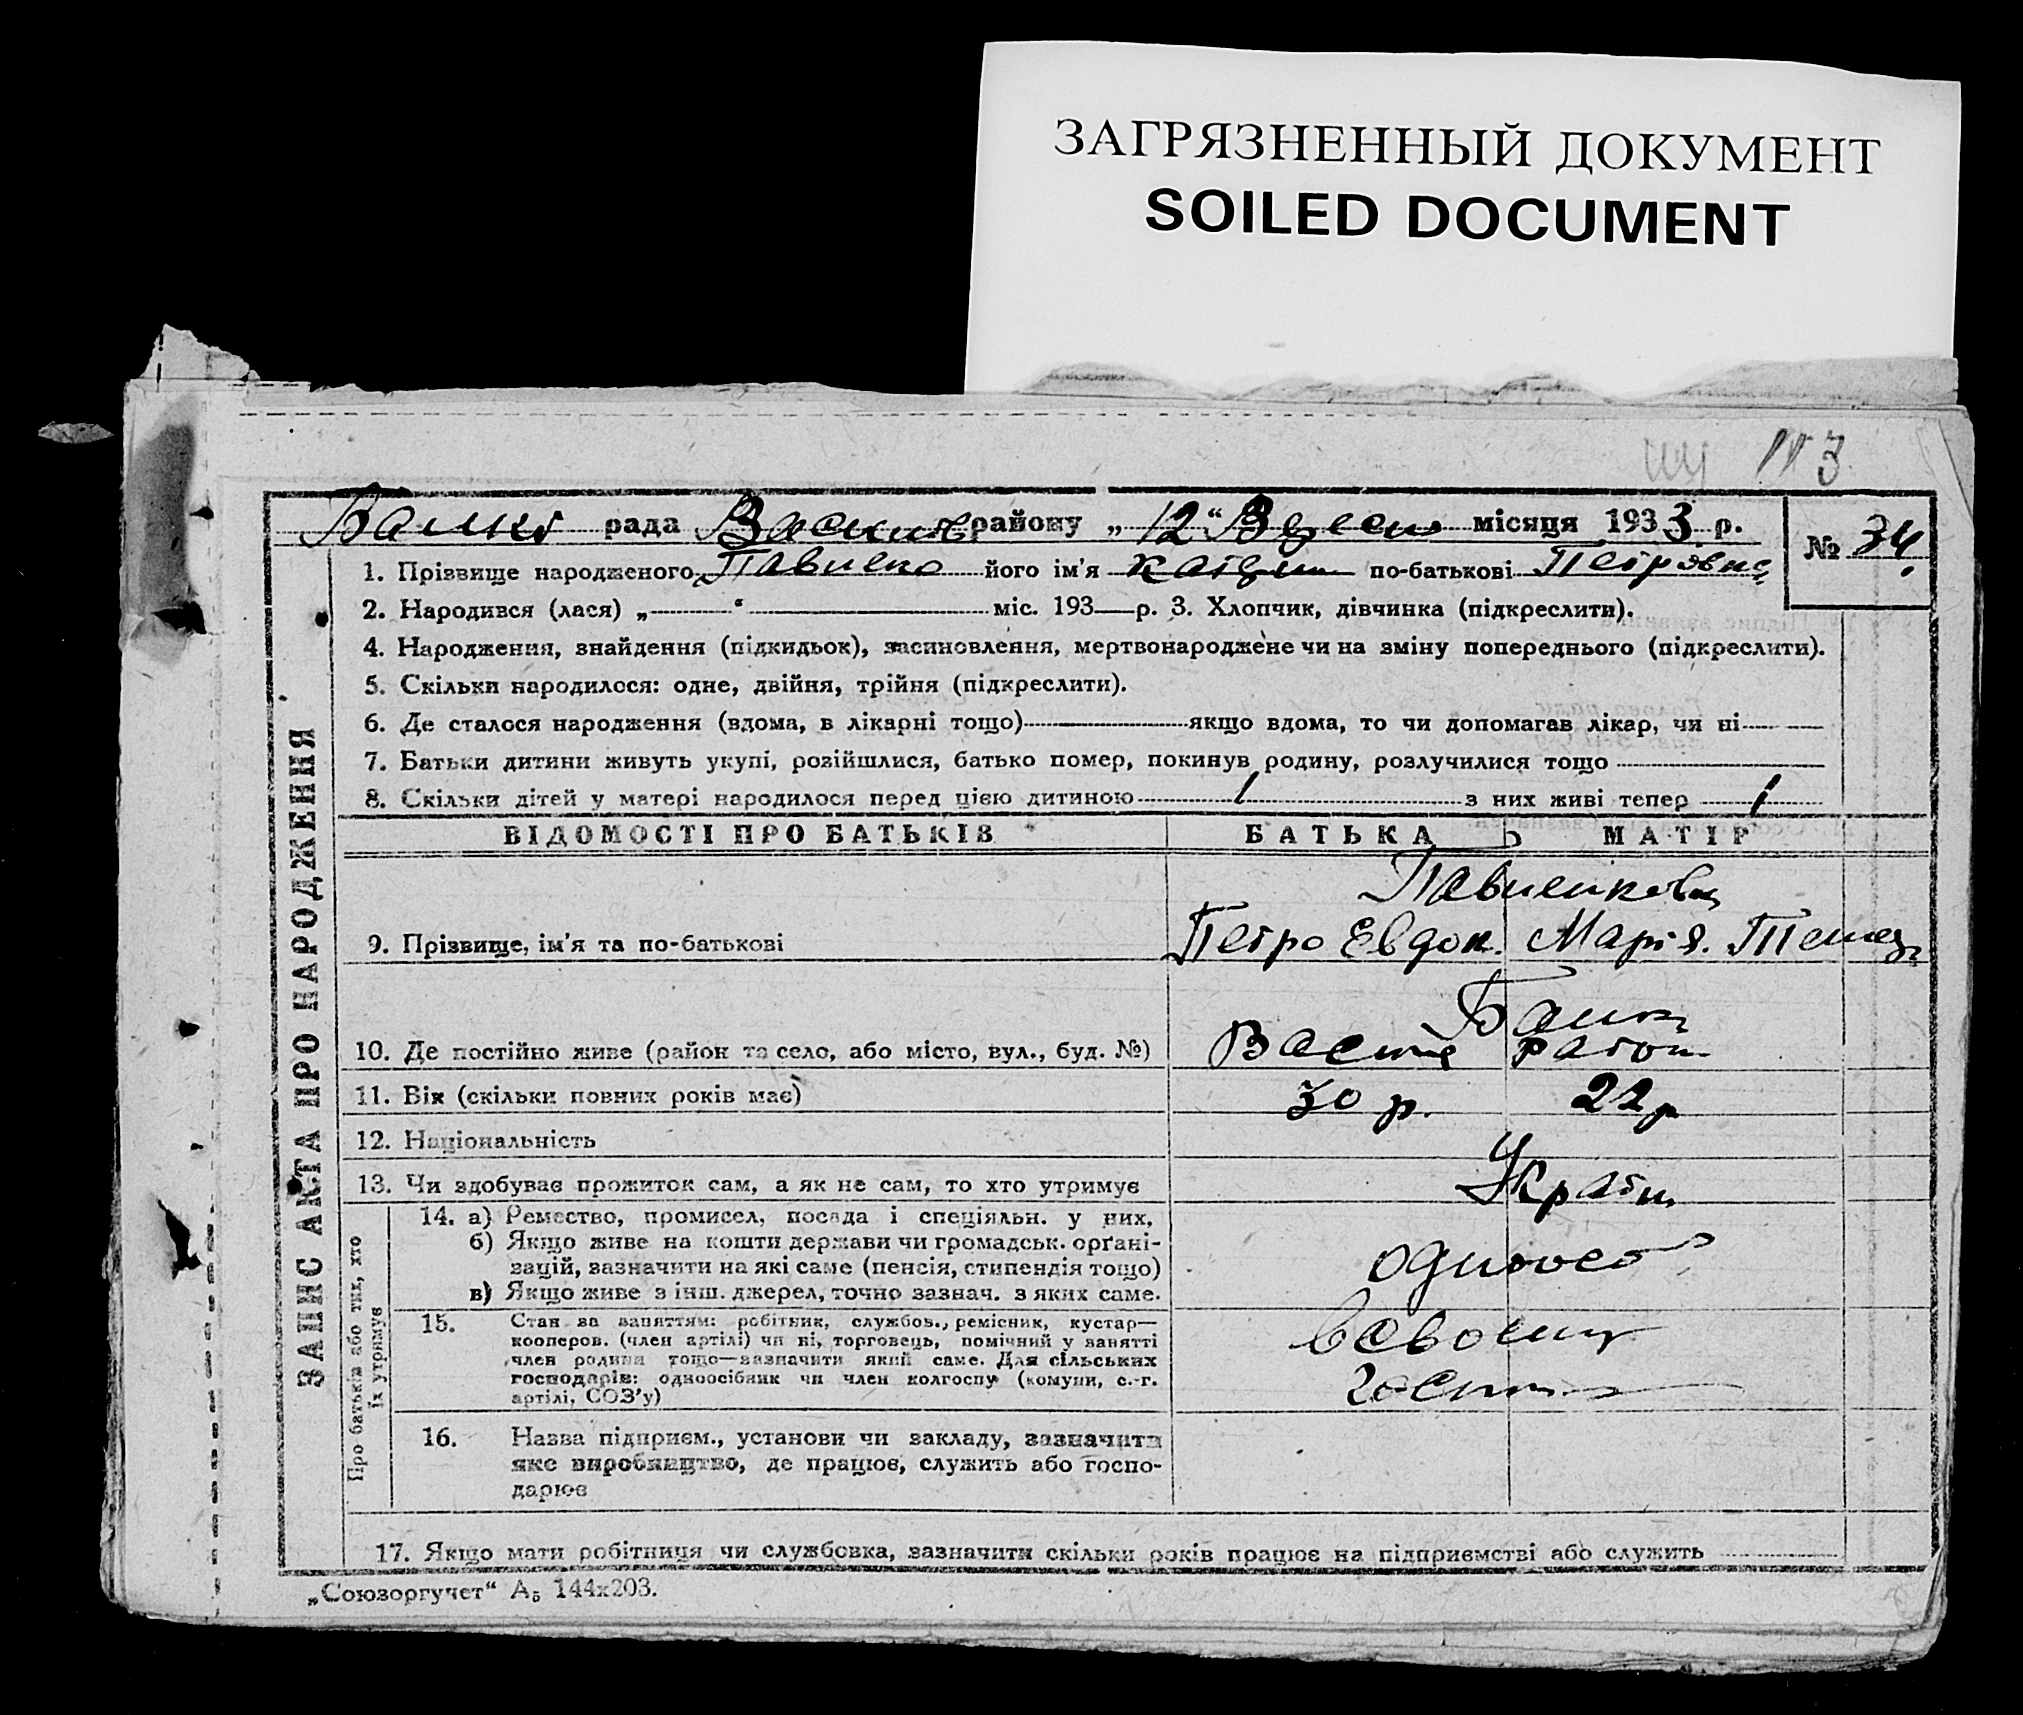 ЗАГРЯЗНЕННЫЙ ДОКУМЕНТ
SOILED DOCUMENT
113
рада Васильк району „12“ Вересн місяця 1933 р.
№ 34
1. Прізвище народженого Павленко його ім'я по-батькові Петровна
2. Народився (лася) „ “ міс. 193 р. 3. Хлопчик, дівчинка (підкреслити).
4. Народження, знайдення (підкидьок), засиновлення, мертвонароджене чи на зміну попереднього (підкреслити).
5. Скільки народилося: одне, двійня, трійня (підкреслити).
6. Де сталося народження (вдома, в лікарні тощо) якщо вдома, то чи допомагав лікар, чи ні
7. Батьки дитини живуть укупі, розійшлися, батько помер, покинув родину, розлучилися тощо
8. Скільки дітей у матері народилося перед цією дитиною 1 з них живі тепер 1
ВІДОМОСТІ ПРО БАТЬКІВ БАТЬКА МАТІР
Павленкови
9. Прізвище, ім'я та по-батькові Петро Евдок. Марія.
10. Де постійно живе (район та село, або місто, вул., буд. №) район
11. Вік (скільки повних років має) 30 р. 22 р
12. Національність
Украін
13. Чи здобуває прожиток сам, а як не сам, то хто утримує
14. а) Ремество, промисел, посада і спеціяльн. у них,
б) Якщо живе на кошти держави чи громадськ. орґані-
зацій, зазначити на які саме (пенсія, стипендія тощо)
одноособ
в) Якщо живе з інш. джерел, точно зазнач. з яких саме.
15. Стан за заняттям: робітник, службов., ремісник, кустар—
кооперов. (член артілі) чи ні, торговець, помічний у занятті
член родини тощо—зазначити який саме. Для сільських
господарів: одноосібник чи член колгоспу (комуни, с.-г.
артілі, СОЗ'у)
16. Назва підприєм., установи чи закладу, зазначити
яке виробництво, де працює, служить або госпо-
дарює
17. Якщо мати робітниця чи службовка, зазначити скільки років працює на підприємстві або служить
ЗАПИС АКТА ПРО НАРОДЖЕННЯ
Про батьків або тих, хто
їх утримує
„Союзоргучет“ А₅ 144х203.